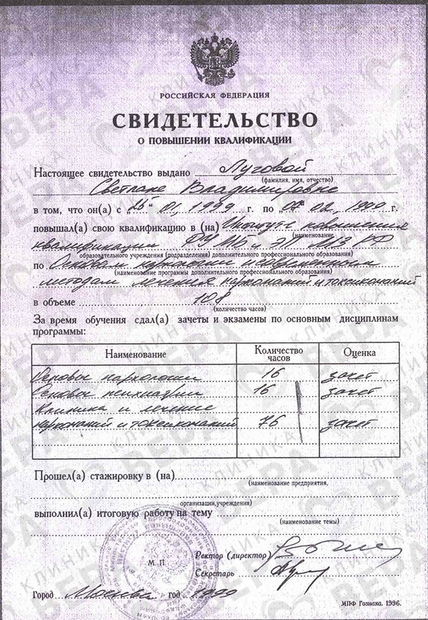 РОССИЙСКАЯ ФЕДЕРАЦИЯ
СВИДЕТЕЛЬСТВО
О ПОВЫШЕНИИ КВАЛИФИКАЦИИ
Настоящее свидетельство выдано Луговой
(фамилия, имя, отчество)
Светлане Владимировне
в том, что он(а) с 01, 1999 г. по 02, г.
повышал(а) свою квалификацию в (на) повышения
(наименование
квалификации МЗ РФ
образовательного учреждения (подразделения) дополнительного профессионального образования)
по Основам
(наименование программы дополнительного профессионального образования)
методам лечения наркоманий и токсикоманий
в объеме 108
(количество часов)
За время обучения сдал(а) зачеты и экзамены по основным дисциплинам
программы:
Наименование Количество часов Оценка
Основы наркологии 16 зачет
Основы психиатрии 16 зачет
Клиника и лечение
наркоманий и токсикоманий 76 зачет
Прошел(а) стажировку в (на)
(наименование предприятия,
организации, учреждения)
выполнил(а) итоговую работу на тему
(наименование темы)
Ректор (директор)
М. П.
Секретарь
Город Москва год 1999
МПФ Гознака. 1996.
КЛИНИКА
ВЕРА